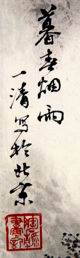 暮春烟雨
一清写於北京